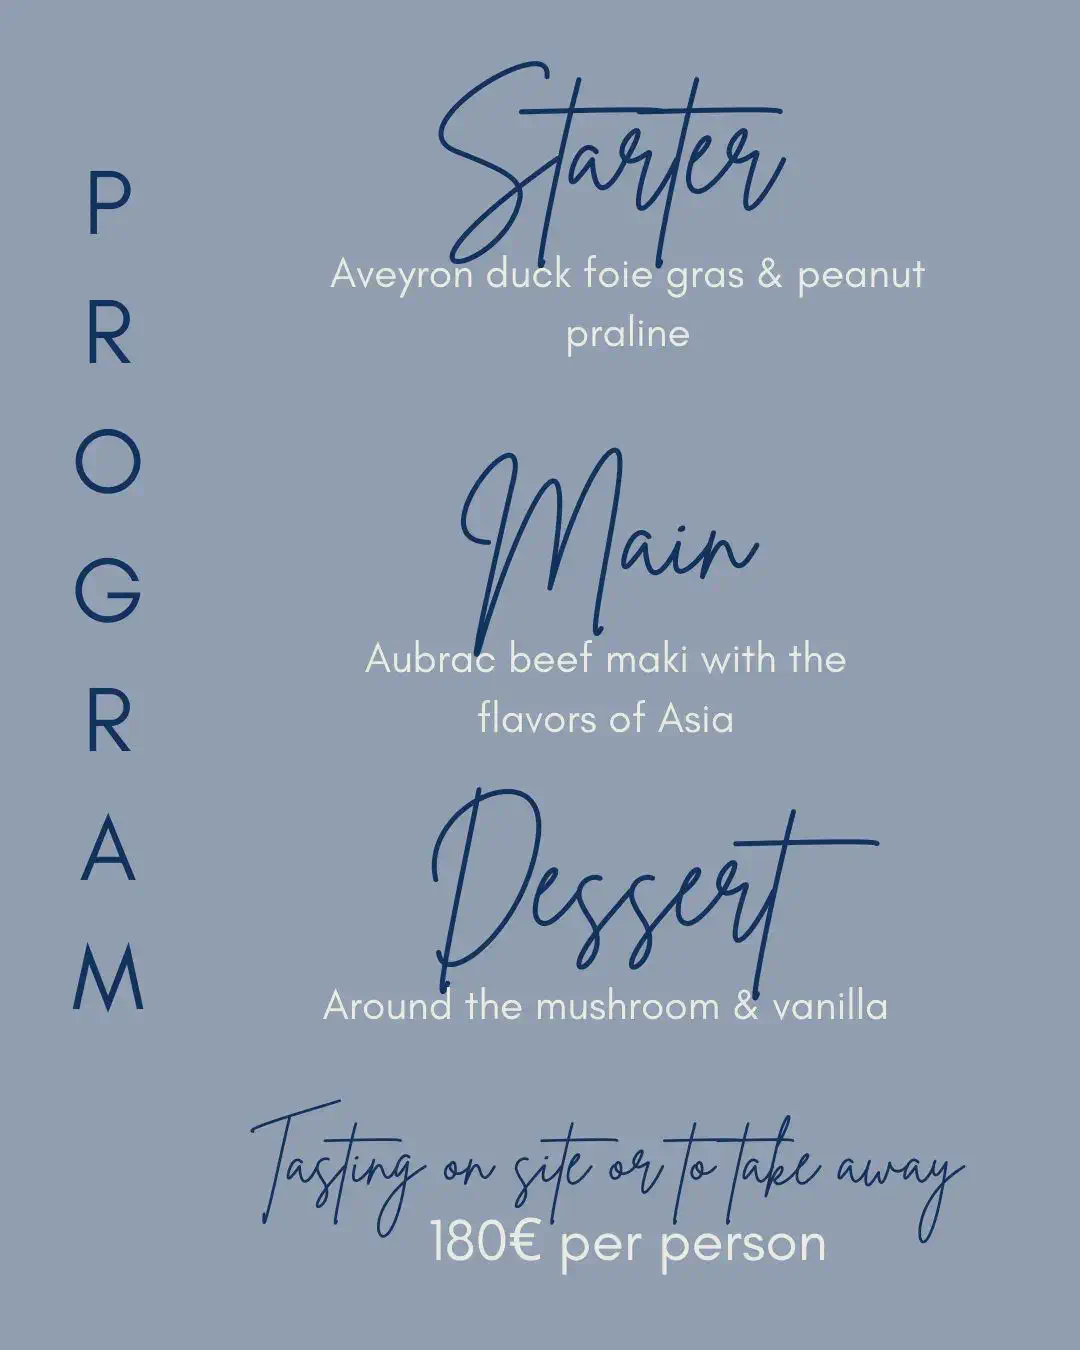 PROGRAM
Starter
Aveyron duck foie gras & peanut
praline
Main
Aubrac beef maki with the
flavors of Asia
Dessert
Around the mushroom & vanilla
Tasting on site or to take away
180€ per person